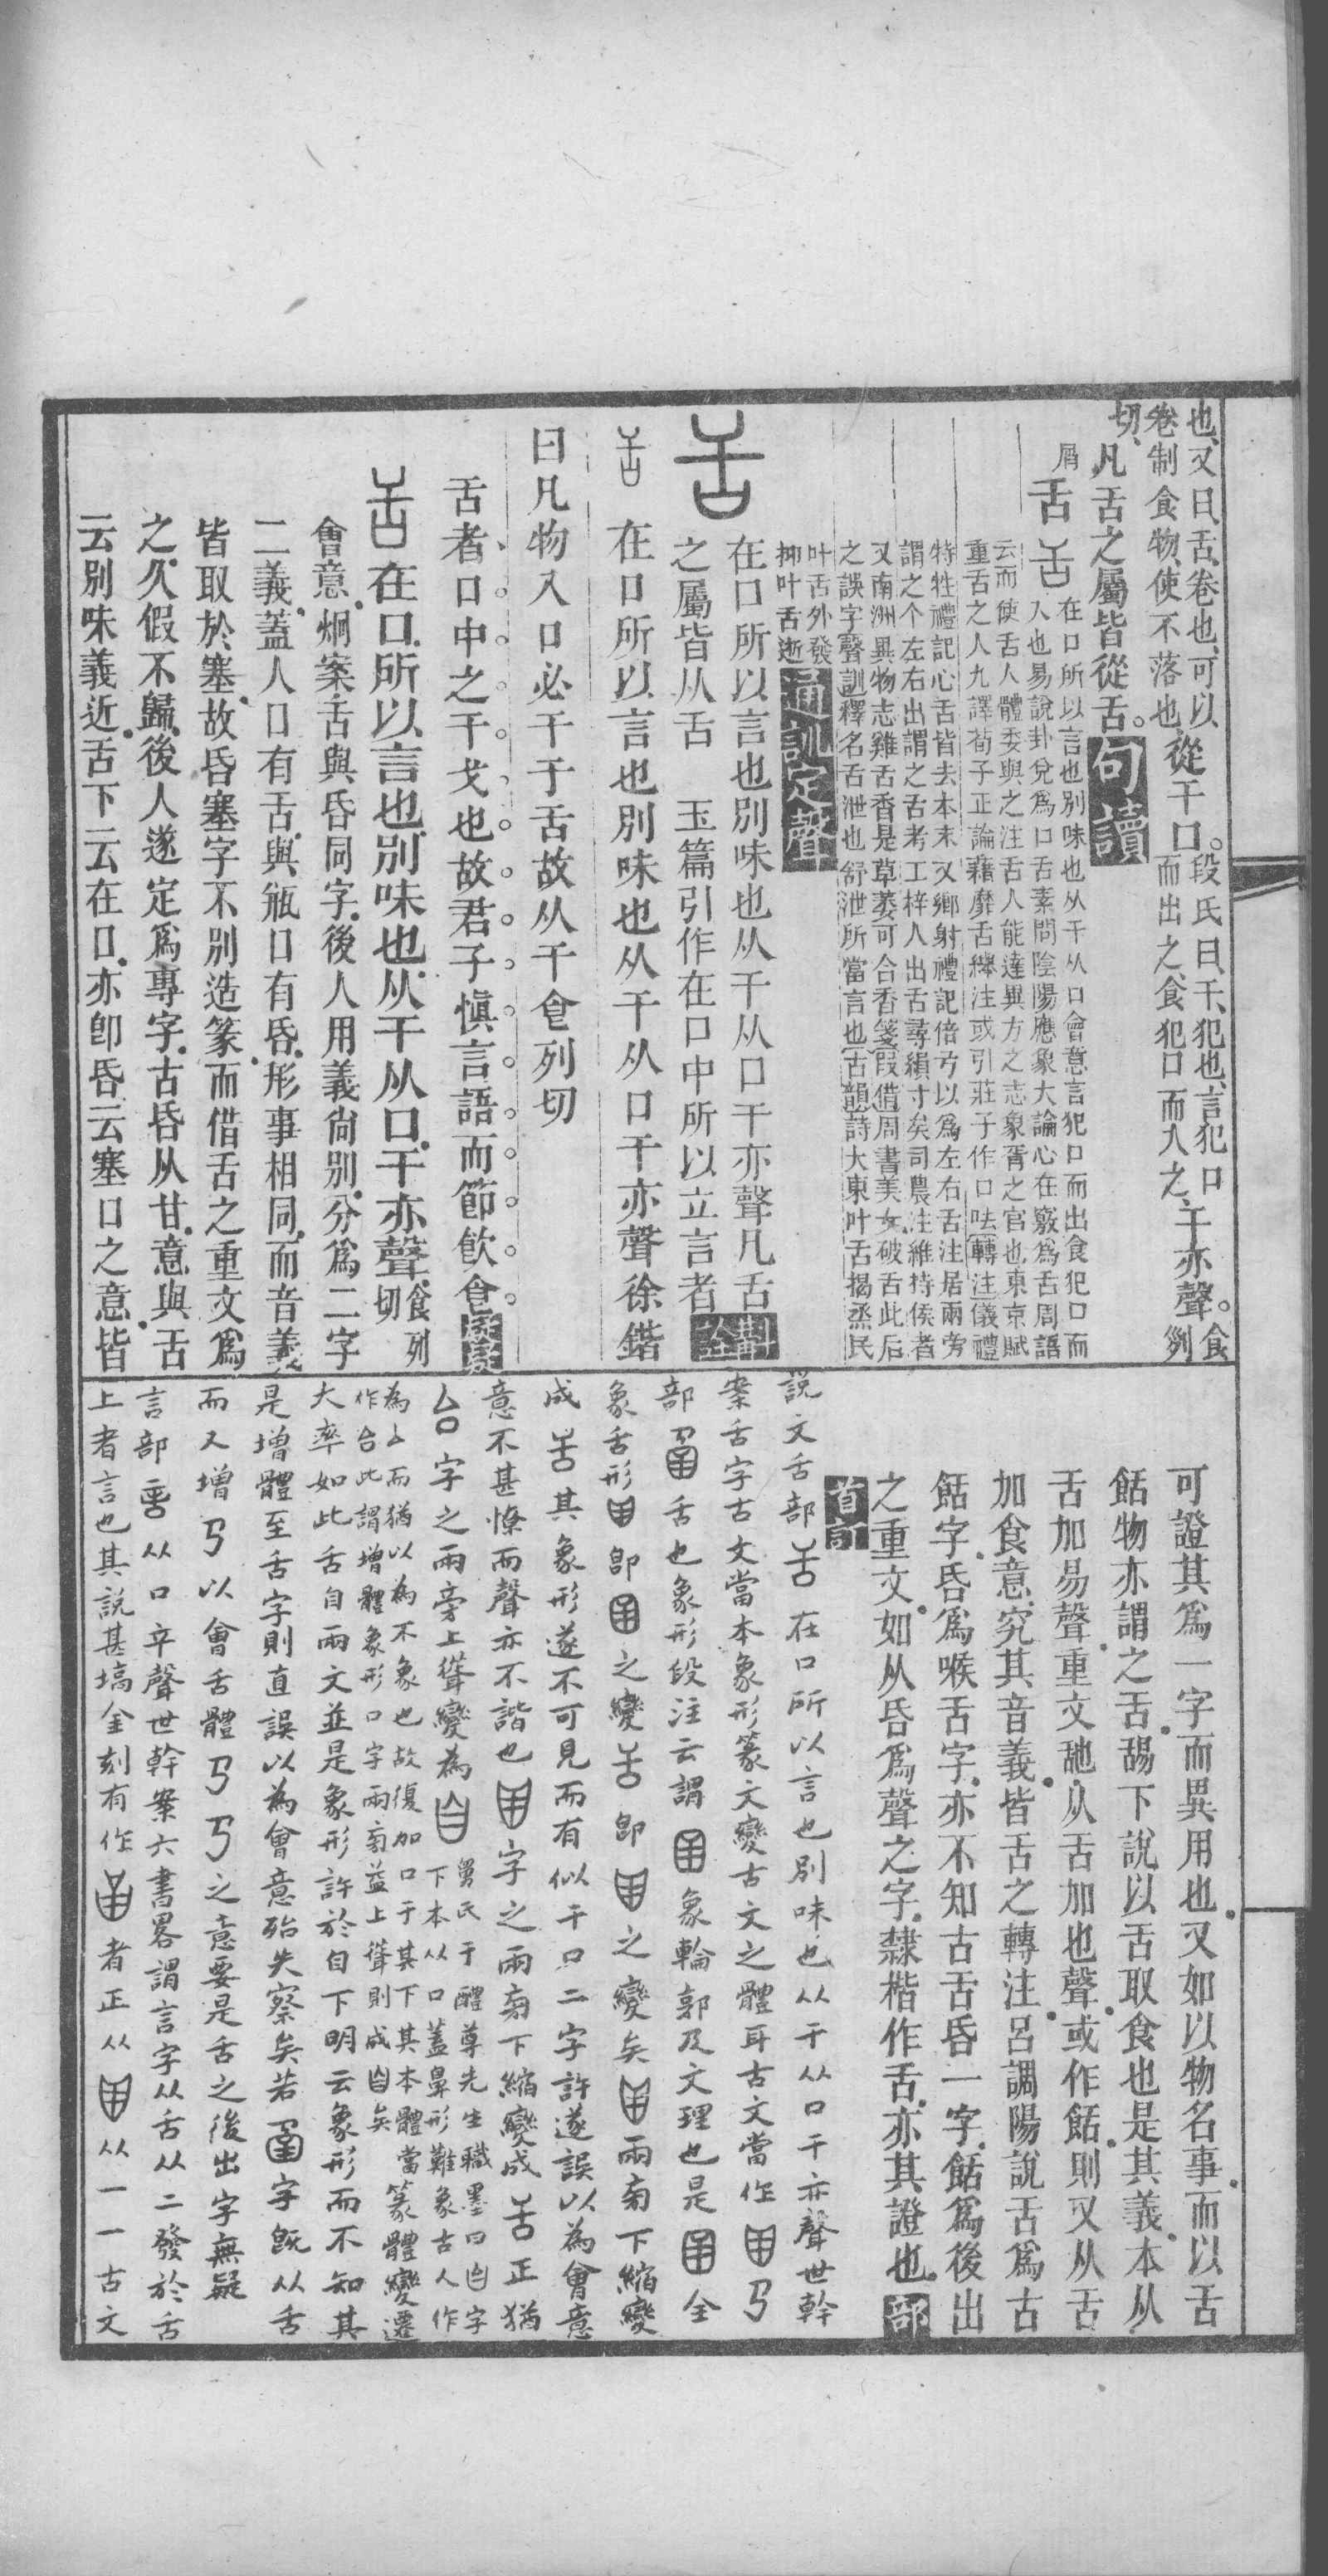 也又曰舌卷也可以
卷制食物使不落也從干口段氏曰干犯也言犯口
而出之食犯口而入之干亦聲食列
切凡舌之屬皆從舌句讀
屑
舌在口所以言也別味也从干从口會意言犯口而出食犯口而
入也易說卦兌爲口舌素問陰陽應象大論心在竅爲舌周語
云而使舌人體委與之注舌人能達異方之志象胥之官也東京賦
重舌之人九譯荀子正論藉靡舌纆注或引莊子作口呿轉注儀禮
特牲禮記心舌皆去本末又鄉射禮記倍吂以爲左右舌注居兩旁
謂之个左右出謂之舌考工梓人出舌尋縜寸矣司農注維持侯者
又南洲異物志雞舌香是草萎可合香箋叚借周書美女破舌此后
之誤字聲訓釋名舌泄也舒泄所當言也古韻詩大東叶舌揭烝民
叶舌外發
抑叶舌逝通訓定聲
在口所以言也別味也从干从口干亦聲凡舌
之屬皆从舌 玉篇引作在口中所以立言者
在口所以言也別味也从干从口干亦聲徐鍇
曰凡物入口必干于舌故从干食列切
舌者口中之干戈也故君子愼言語而節飮食
在口所以言也別味也从干从口干亦聲食列切
會意烱案舌與昏同字後人用義尙別分爲二字
二義葢人口有舌與瓶口有昏形事相同而音義
皆取於塞故昏塞字不別造篆而借舌之重文爲
之久假不歸後人遂定爲專字古昏从甘意與舌
云別味義近舌下云在口亦卽昏云塞口之意皆
可證其爲一字而異用也又如以物名事而以舌
餂物亦謂之舌舓下說以舌取食也是其義本从
舌加易聲重文𦧇从舌加也聲或作餂則又从舌
加食意究其音義皆舌之轉注呂調陽說舌爲古
餂字昏爲喉舌字亦不知古舌昏一字餂爲後出
之重文如从昏爲聲之字隸楷作舌亦其證也部
首訂
說文舌部舌在口所以言也別味也从干从口干亦聲世幹
案舌字古文當本象形篆文變古文之體耳古文當作
部 舌也象形段注云謂 象輪郭及文理也是 全
象舌形 卽 之變舌卽 之變矣 兩旁下縮變
成舌其象形遂不可見而有似干口二字許遂誤以為會意
意不甚憭而聲亦不諧也 字之兩旁下縮變成舌正猶
字之兩旁上聳變為 舅氏于醴尊先生職墨曰 字
下本从口蓋鼻形難象古人作
為 而猶以為不象也故復加口于其下其本體當篆體變遷
作 此謂增體象形口字兩旁益上聳則成 矣
大率如此舌自兩文並是象形許於自下明云象形而不知其
是增體至舌字則直誤以為會意殆失察矣若 字旣从舌
而又增 以會舌體 之意要是舌之後出字無疑
言部 从口䇂聲世幹案六書畧謂言字从舌从二發於舌
上者言也其說甚塙金刻有作 者正从 从一一古文